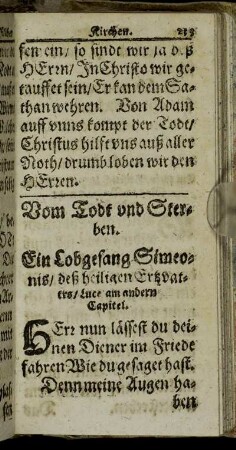 Kirchen. 239
sen ein/ so sindt wir ja deß
HErrn/ In Christo wir ge-
tauffet sein/ Er kan dem Sa-
than wehren. Von Adam
auff vnns kompt der Todt/
Christus hilfft vns auß aller
Noth/ drumb loben wir den
HErren.
Vom Todt vnd Ster-
ben.
Ein Lobgesang Simeo-
nis/ deß heiligen Ertzvat-
ters/ Luce am andern
Capitel.
HErr nun lässest du dei-
nen Diener im Friede
fahren Wie du gesaget hast.
Denn meine Augen ha-
ben